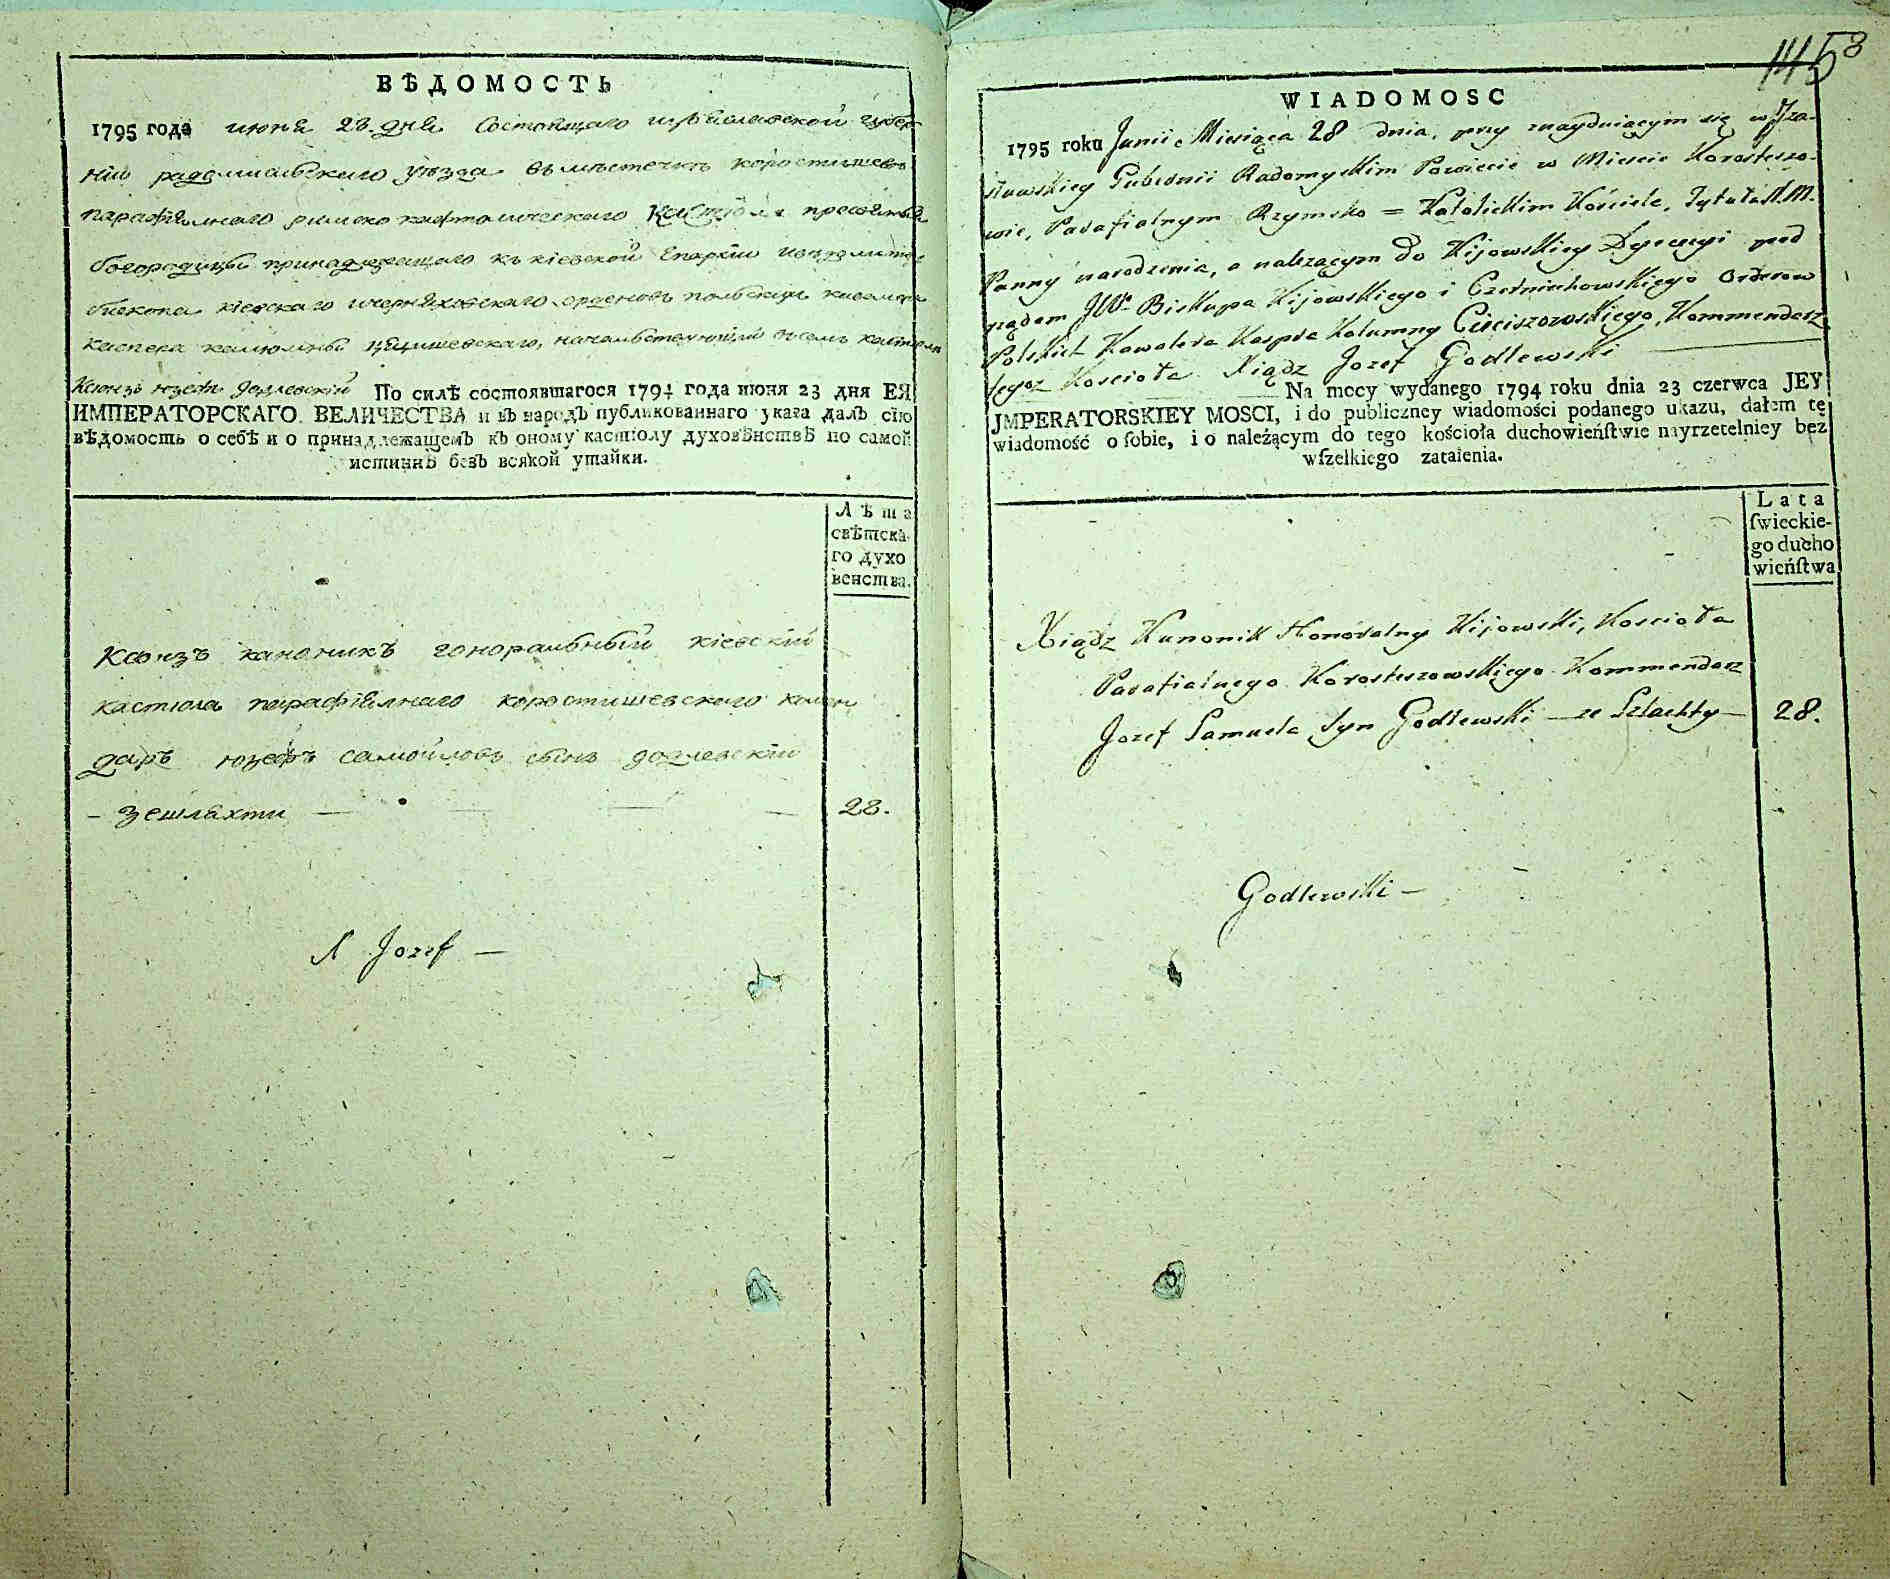 ВѢДОМОСТЬ
1795 года июня 28 дня состоящаго изѣяславской губер
нии радомысльскаго уѣзда въ мѣстечкѣ коростишевѣ
парафіялнаго римско кафтолическаго кастіола пресвятыя
богородицы принадлежащаго къ кіевской Епархіи
бископа кіевскаго ичерняховскаго орденовъ польскихъ кавалера
каспера калюмны цѣцишевскаго, начальствующій онемъ
Ксіонзъ юзефъ годлевскій По силѣ состоявшагося 1794 года июня 23 дня ЕЯ
ИМПЕРАТОРСКАГО ВЕЛИЧЕСТВА и въ народъ публикованнаго указа далъ сію
вѣдомость о себѣ и о принадлежащемъ къ оному кастіолу духовѣнствѣ по самой
истиннѣ безъ всякой утайки.
Лѣта
свѣтска
го духо
венства.
Ксіонзъ каноникъ гоноральный кіевскій
кастіола парафіялнаго коростишевскаго комен
даръ юзефъ самойловъ сынъ годлевскій
– зешляхти — — — — 28.
X Jozef —
1458
WIADOMOSC
1795 roku Junii Miesiąca 28 dnia, przy znayduiącym się w Jza-
sławskiey Gubernii Radomyskim Powiecie w Miescie Korosteszo-
wie, Parafialnym Rzymsko = Katolickim Kościele, Tytułu N. M.
Panny narodzenia, a należącym do Kijowskiey Dyecezyi pod
rządem JW. Biskupa Kijowskiego i Czerniechowskiego Orderow
Polskich Kawalera Kaspra Kolumny Cieciszowskiego, Kommendarz
tegoż Kościoła Xiądz Jozef Godlewski —
Na mocy wydanego 1794 roku dnia 23 czerwca JEY
JMPERATORSKIEY MOSCI, i do publiczney wiadomości podanego ukazu, dałem tę
wiadomość o ſobie, i o należącym do tego kościoła duchowieńſtwie nayrzetelniey bez
wſzelkiego zataienia.
Lata
ſwieckie-
go ducho
wieńſtwa
Xiądz Kanonik Honoralny Kijowski, Kościoła
Parafialnego Korosteszowskiego Kommendarz
Jozef Samuela Syn Godlewski — ze Szlachty — 28.
Godlewski —